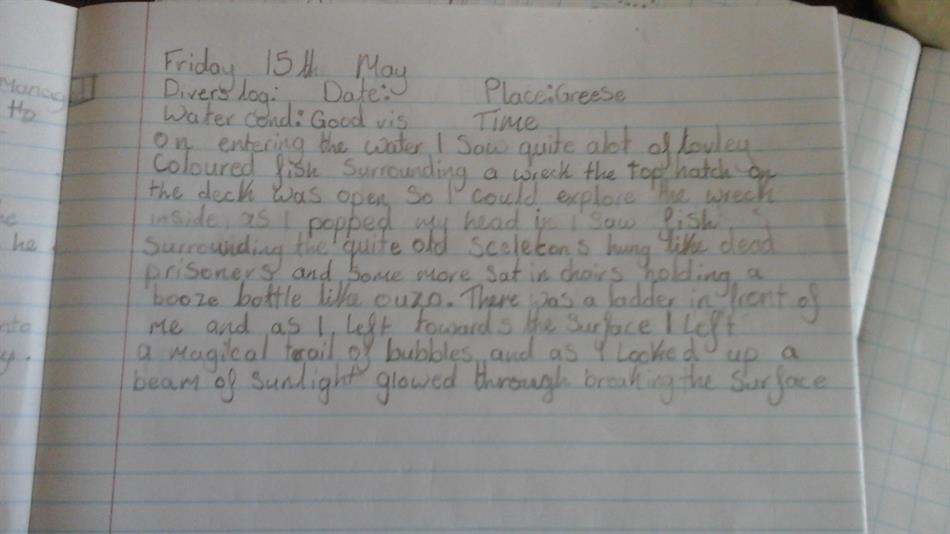 Manag
Ho
he
he
nta
y.
Friday 15th May
Divers log: Date: Place: Greese
Water cond: Good vis Time
On entering the water I saw quite alot of lovley
coloured fish surrounding a wreck the top hatch on
the deck was open so I could explore the wreck
inside as I popped my head in I saw fish
surrounding the quite old sceletons hung like dead
prisoners and some more sat in chairs holding a
booze bottle like ouzo. There was a ladder in front of
me and as I left towards the surface I left
a magical trail of bubbles and as I looked up a
beam of sunlight glowed through breaking the surface